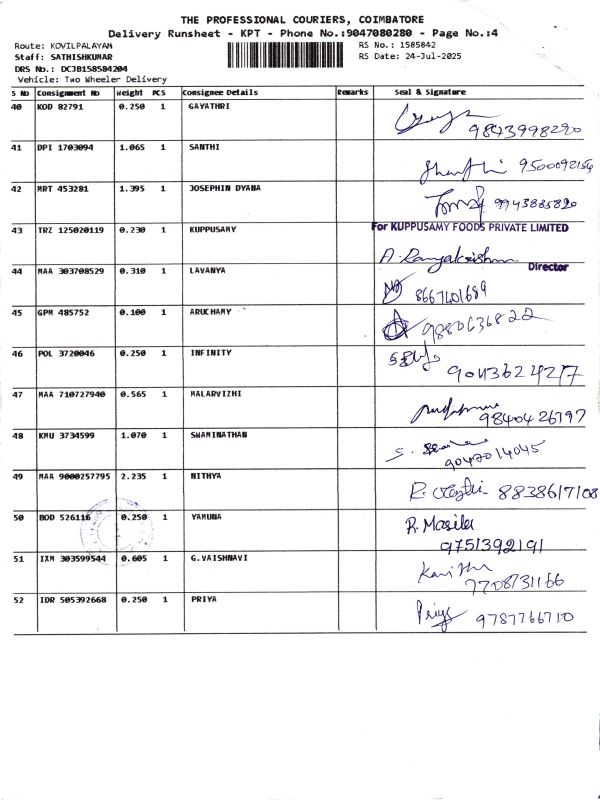 THE PROFESSIONAL COURIERS, COIMBATORE
Delivery Runsheet - KPT - Phone No.:9047080280 - Page No.:4
Route: KOVILPALAYAM RS No.: 1585842
Staff: SATHISHKUMAR RS Date: 24-Jul-2025
DRS No.: DCJB158584204
Vehicle: Two Wheeler Delivery
S No Consignment No Weight PCS Consignee Details Remarks Seal & Signature
40 KOD 82791 0.250 1 GAYATHRI
9843998290
41 DPI 1703094 1.065 1 SANTHI
9500092154
42 MRT 453281 1.395 1 JOSEPHIN DYANA
9943885820
43 TRZ 125020119 0.230 1 KUPPUSAMY For KUPPUSAMY FOODS PRIVATE LIMITED
A. Ramyakrishna
Director
44 MAA 303708529 0.310 1 LAVANYA
8667401689
45 GPM 485752 0.100 1 ARUKHAMY
9880636822
46 POL 3720046 0.250 1 INFINITY
9043624217
47 MAA 710727940 0.565 1 MALARVIZHI
9840426797
48 KMU 3734599 1.070 1 SWAMINATHAN
9042014045
49 MAA 9000257795 2.235 1 NITHYA
8838617108
50 BOD 526116 0.250 1 YAMUNA R. Masila
9751392191
51 IXM 303599544 0.605 1 G.VAISHNAVI
7708731166
52 IDR 505392668 0.250 1 PRIYA
Priya 9787766710